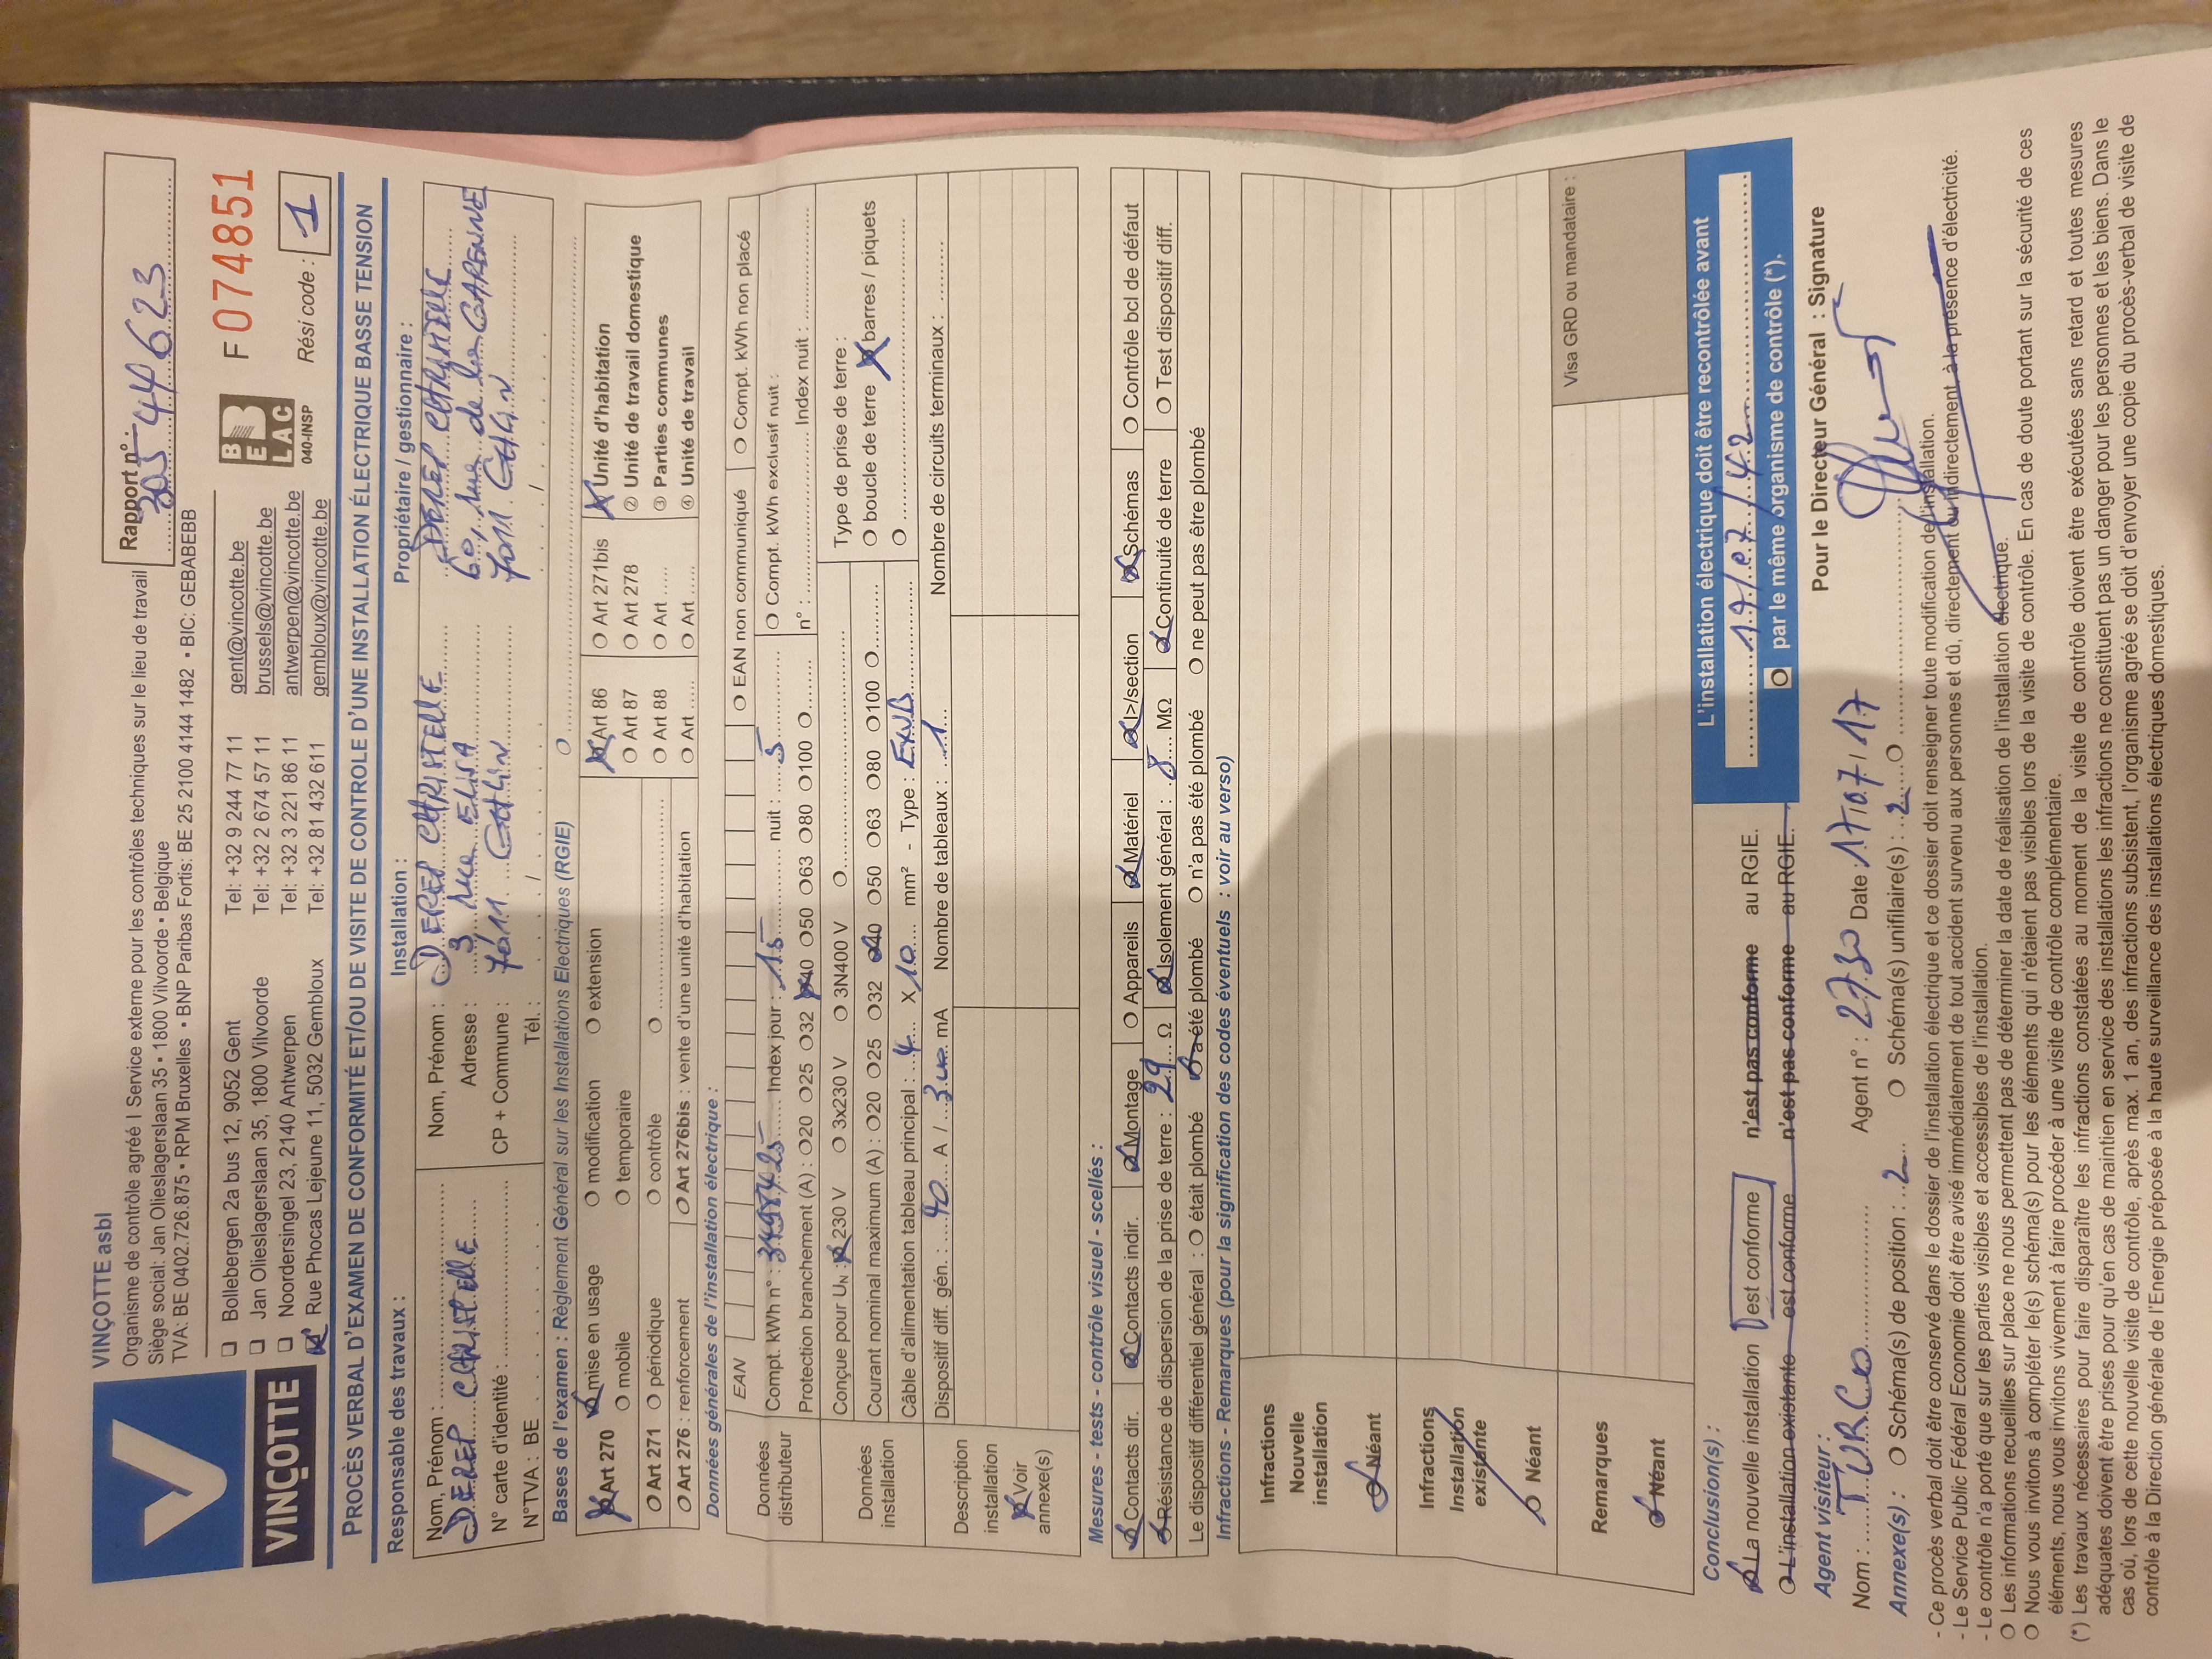 VINÇOTTE
VINÇOTTE asbl
Organisme de contrôle agréé I Service externe pour les contrôles techniques sur le lieu de travail
Siège social: Jan Olieslagerslaan 35 • 1800 Vilvoorde • Belgique
TVA: BE 0402.726.875 • RPM Bruxelles • BNP Paribas Fortis: BE 25 2100 4144 1482 • BIC: GEBABEBB
Rapport n°:
305 44623
❏ Bollebergen 2a bus 12, 9052 Gent Tel: +32 9 244 77 11 gent@vincotte.be
❏ Jan Olieslagerslaan 35, 1800 Vilvoorde Tel: +32 2 674 57 11 brussels@vincotte.be
❏ Noordersingel 23, 2140 Antwerpen Tel: +32 3 221 86 11 antwerpen@vincotte.be
Rue Phocas Lejeune 11, 5032 Gembloux Tel: +32 81 432 611 gembloux@vincotte.be
BELAC
040-INSP
F 074851
Rési code : 1
PROCÈS VERBAL D'EXAMEN DE CONFORMITÉ ET/OU DE VISITE DE CONTROLE D'UNE INSTALLATION ÉLECTRIQUE BASSE TENSION
Responsable des travaux : Installation : Propriétaire / gestionnaire :
Nom, Prénom : DEREP CHRISTELLE
N° carte d'identité :
N°TVA : BE
Nom, Prénom : DEREP CHRISTELLE
Adresse : 3 rue ELISA
CP + Commune : 7011 GHLIN
Tél. :
DEREP CHRISTELLE
60, rue de la GARENNE
7011 GHLIN
Bases de l'examen : Règlement Général sur les Installations Electriques (RGIE)
Art 270 mise en usage O modification O extension
O mobile O temporaire
O Art 271 O périodique O contrôle O
O Art 276 : renforcement O Art 276bis : vente d'une unité d'habitation
Art 86 O Art 271bis Unité d'habitation
O Art 87 O Art 278 ② Unité de travail domestique
O Art 88 O Art ..... ③ Parties communes
O Art ..... O Art ..... ④ Unité de travail
Données générales de l'installation électrique :
Données distributeur
EAN O EAN non communiqué O Compt. kWh non placé
Compt. kWh n° : Index jour : 15 nuit : 5 O Compt. kWh exclusif nuit :
Protection branchement (A) : O20 O25 O32 40 O50 O63 O80 O100 O n° : Index nuit :
Données installation
Conçue pour UN : 230 V O 3x230 V O 3N400 V O Type de prise de terre :
Courant nominal maximum (A) : O20 O25 O32 40 O50 O63 O80 O100 O O boucle de terre barres / piquets
Câble d'alimentation tableau principal : 4 X 10 mm² - Type : EXVB O
Dispositif diff. gén. : 40 A / 300 mA Nombre de tableaux : 1 Nombre de circuits terminaux :
Description installation
Voir annexe(s)
Mesures - tests - contrôle visuel - scellés :
Contacts dir. Contacts indir. Montage O Appareils Matériel I>/section Schémas O Contrôle bcl de défaut
Résistance de dispersion de la prise de terre : 29 Ω Isolement général : 8 MΩ Continuité de terre O Test dispositif diff.
Le dispositif différentiel général : O était plombé a été plombé O n'a pas été plombé O ne peut pas être plombé
Infractions - Remarques (pour la signification des codes éventuels : voir au verso)
Infractions
Nouvelle
installation
Néant
Infractions
Installation
existante
Néant
Remarques
Néant
Visa GRD ou mandataire :
Conclusion(s) :
La nouvelle installation est conforme n'est pas conforme au RGIE.
L'installation existante est conforme n'est pas conforme au RGIE.
L'installation électrique doit être recontrôlée avant
17/07/42
O par le même organisme de contrôle (*).
Agent visiteur :
Nom : TURCO Agent n° : 2730 Date 17/07/17
Pour le Directeur Général : Signature
Annexe(s) : O Schéma(s) de position : 2 O Schéma(s) unifilaire(s) : 2 O
- Ce procès verbal doit être conservé dans le dossier de l'installation électrique et ce dossier doit renseigner toute modification de l'installation.
- Le Service Public Fédéral Economie doit être avisé immédiatement de tout accident survenu aux personnes et dû, directement ou indirectement, à la présence d'électricité.
- Le contrôle n'a porté que sur les parties visibles et accessibles de l'installation.
O Les informations recueillies sur place ne nous permettent pas de déterminer la date de réalisation de l'installation électrique.
O Nous vous invitons à compléter le(s) schéma(s) pour les éléments qui n'étaient pas visibles lors de la visite de contrôle. En cas de doute portant sur la sécurité de ces
éléments, nous vous invitons vivement à faire procéder à une visite de contrôle complémentaire.
(*) Les travaux nécessaires pour faire disparaître les infractions constatées au moment de la visite de contrôle doivent être exécutées sans retard et toutes mesures
adéquates doivent être prises pour qu'en cas de maintien en service des installations les infractions ne constituent pas un danger pour les personnes et les biens. Dans le
cas où, lors de cette nouvelle visite de contrôle, après max. 1 an, des infractions subsistent, l'organisme agréé se doit d'envoyer une copie du procès-verbal de visite de
contrôle à la Direction générale de l'Energie préposée à la haute surveillance des installations électriques domestiques.